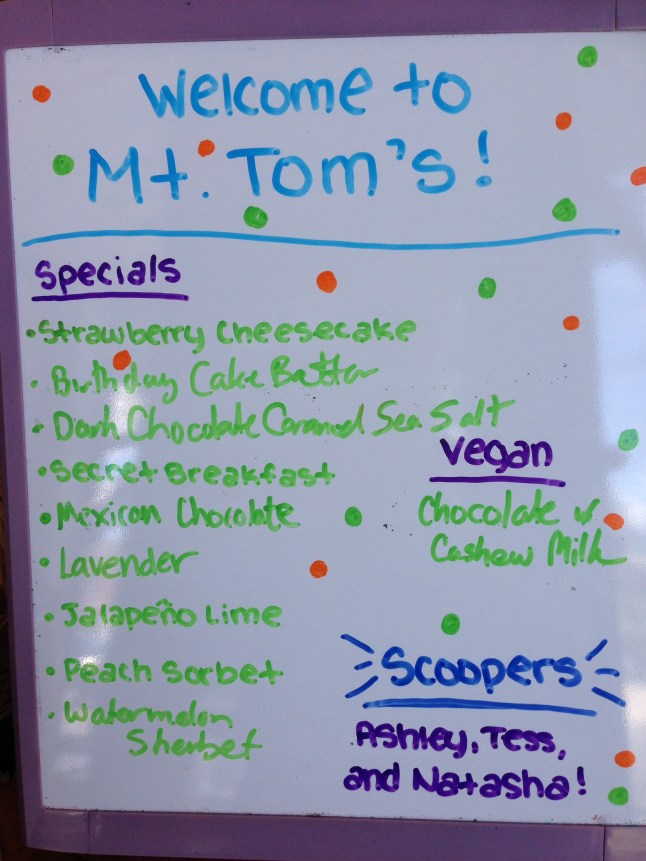 Welcome to
Mt. Tom's!
Specials
• Strawberry Cheesecake
• Birthday Cake Batter
• Dark Chocolate Caramel Sea Salt
• Secret Breakfast
• Mexican Chocolate
• Lavender
• Jalapeño Lime
• Peach Sorbet
• Watermelon
Sherbet
Vegan
Chocolate w/
Cashew Milk
Scoopers
Ashley, Tess,
and Natasha!